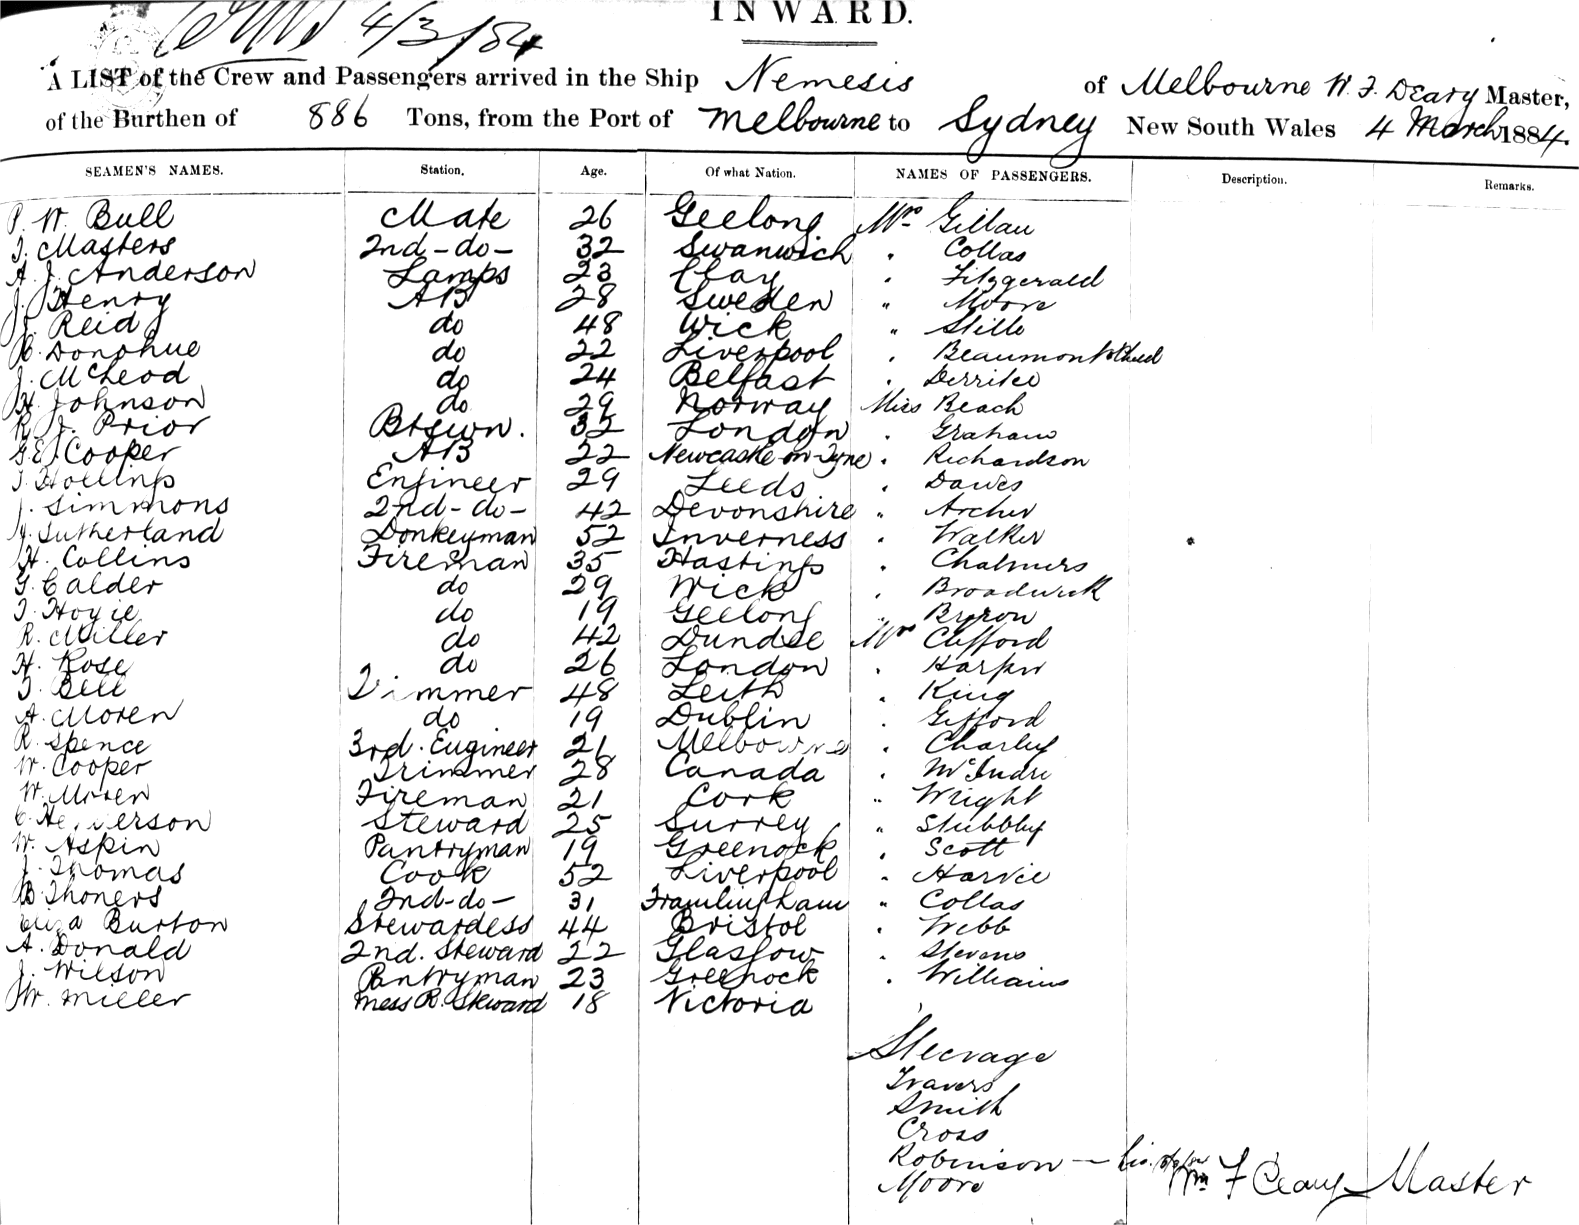 4/3/84
INWARD.
A LIST of the Crew and Passengers arrived in the Ship Nemesis of Melbourne W. F. Deary Master,
of the Burthen of 886 Tons, from the Port of Melbourne to Sydney New South Wales 4 March 1884.
SEAMEN'S NAMES. Station. Age. Of what Nation. NAMES OF PASSENGERS. Description. Remarks.
P. W. Bull Mate 26 Geelong Mrs Gillau
T. Masters 2nd -do- 32 Swanwich " Collas
A. J. Anderson Lamps 23 " Fitzgerald
J. Henry AB 28 Sweden " Moore
J. Reid do 48 Wick "
H. Donohue do 22 Liverpool " Beaumont & Child
J. McLeod do 24 Belfast "
H. Johnson do 29 Norway Miss Beach
R. J. Prior Btswn. 32 London " Graham
G. E. Cooper AB 22 Newcastle-on-Tyne " Richardson
T. Hollins Engineer 29 Leeds " Dawes
J. Simmons 2nd -do- 42 Devonshire " Archer
J. Sutherland Donkeyman 52 Inverness " Walker
H. Collins Fireman 35 Hastings " Chalmers
G. Calder do 29 Wick " Broadwick
T. Hogie do 19 Geelong " Byron
R. Miller do 42 Dundee Mrs Clifford
H. Rose do 26 London " Harper
T. Bell Trimmer 48 Leith " King
A. Moren do 19 Dublin " Gifford
R. Spence 3rd. Engineer 21 Melbourne " Charley
W. Cooper Trimmer 28 Canada "
W. Moren Fireman 21 Cork " Wright
C. Steward 25 Surrey " Stubbly
W. Aspin Pantryman 19 Greenock " Scott
J. Thomas Cook 52 Liverpool " Harvie
B. Thoners 2nd -do- 31 Framlingham " Collas
Eliza Burton Stewardess 44 Bristol " Webb
A. Donald 2nd. Steward 22 Glasgow " Stevens
J. Wilson Pantryman 23 Greenock " Williams
W. Miller Mess R. Steward 18 Victoria
Steerage
Travers
Smith
Cross
Robinson
Moore
Wm F Deary Master